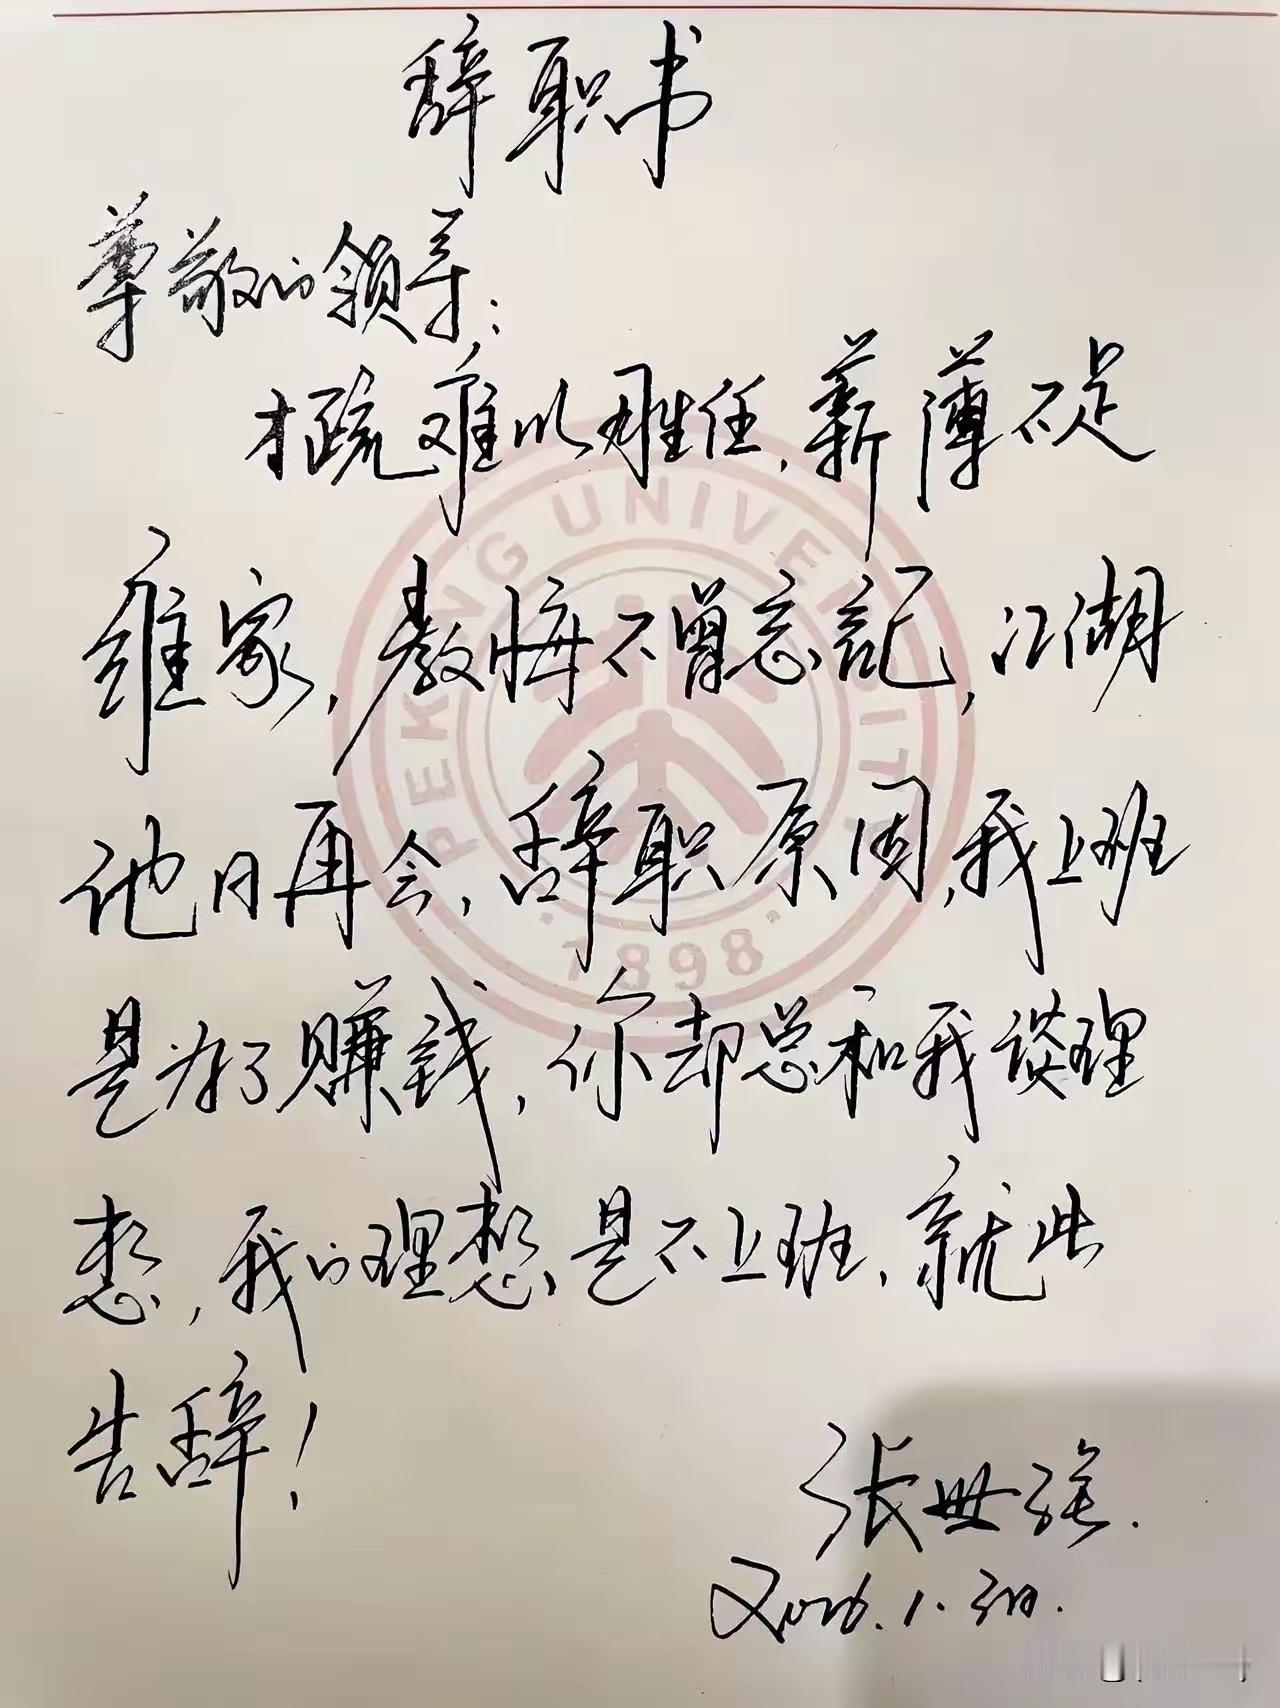 辞职书
尊敬的领导：
才疏难以胜任，薪薄不足
维家，教悔不曾忘记，江湖
他日再会，辞职原因，我上班
是为了赚钱，你却总和我谈理
想，我的理想是不上班，就此
告辞！
张世强.
2026.1.3日.
PEKING UNIVERSITY
1898